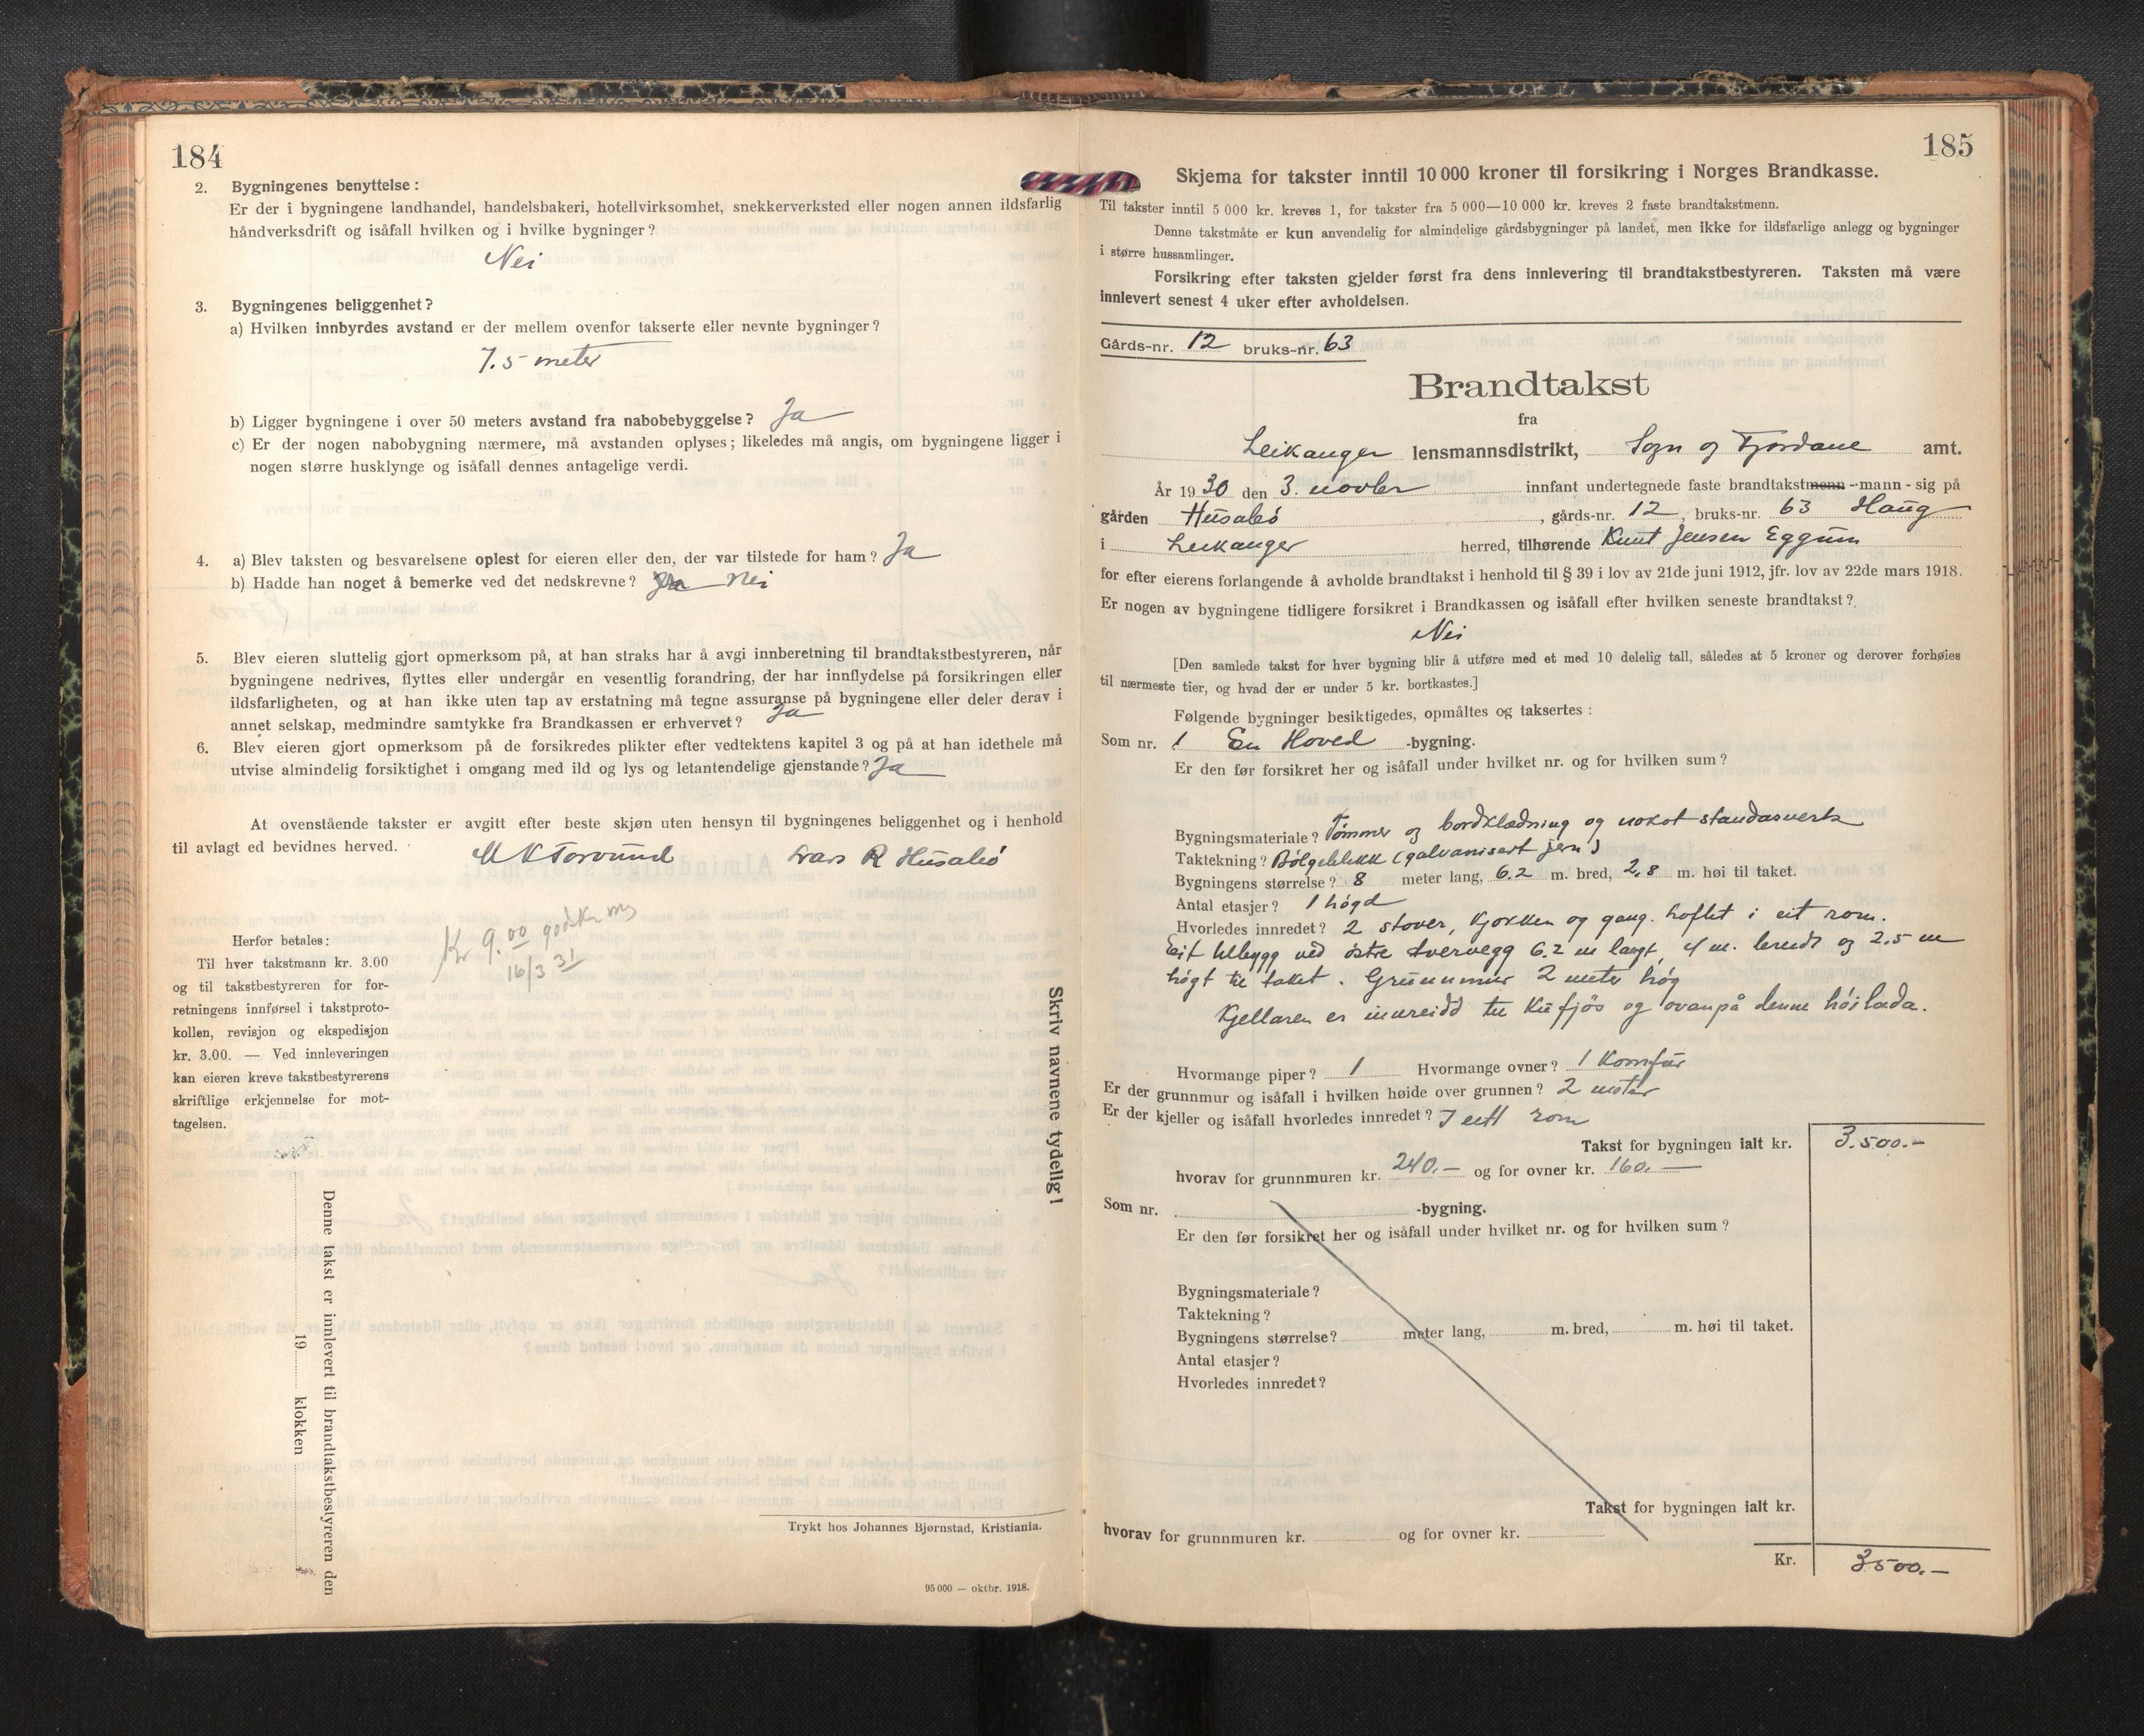 184
2. Bygningenes benyttelse:
Er der i bygningene landhandel, handelsbakeri, hotellvirksomhet, snekkerverksted eller nogen annen ildsfarlig
håndverksdrift og isåfall hvilken og i hvilke bygninger?
Nei
3. Bygningenes beliggenhet?
a) Hvilken innbyrdes avstand er der mellem ovenfor takserte eller nevnte bygninger?
7.5 meter
b) Ligger bygningene i over 50 meters avstand fra nabobebyggelse? Ja
c) Er der nogen nabobygning nærmere, må avstanden oplyses; likeledes må angis, om bygningene ligger i
nogen større husklynge og isåfall dennes antagelige verdi.
4. a) Blev taksten og besvarelsene oplest for eieren eller den, der var tilstede for ham? Ja
b) Hadde han noget å bemerke ved det nedskrevne? Ja Nei
5. Blev eieren sluttelig gjort opmerksom på, at han straks har å avgi innberetning til brandtakstbestyreren, når
bygningene nedrives, flyttes eller undergår en vesentlig forandring, der har innflydelse på forsikringen eller
ildsfarligheten, og at han ikke uten tap av erstatning må tegne assuranse på bygningene eller deler derav i
annet selskap, medmindre samtykke fra Brandkassen er erhvervet? Ja
6. Blev eieren gjort opmerksom på de forsikredes plikter efter vedtektens kapitel 3 og på at han idethele må
utvise almindelig forsiktighet i omgang med ild og lys og letantendelige gjenstande? Ja
At ovenstående takster er avgitt efter beste skjøn uten hensyn til bygningenes beliggenhet og i henhold
til avlagt ed bevidnes herved.
Lars R Husabø
Herfor betales:
Til hver takstmann kr. 3.00
og til takstbestyreren for for-
retningens innførsel i takstproto-
kollen, revisjon og ekspedisjon
kr. 3.00. — Ved innleveringen
kan eieren kreve takstbestyrerens
skriftlige erkjennelse for mot-
tagelsen.
Kr 9.00
16/3 31
Skriv navnene tydelig!
Denne takst er innlevert til brandtakstbestyreren den
19 klokken
Trykt hos Johannes Bjørnstad, Kristiania.
95 000 — oktbr. 1918.
185
Skjema for takster inntil 10 000 kroner til forsikring i Norges Brandkasse.
Til takster inntil 5 000 kr. kreves 1, for takster fra 5 000—10 000 kr. kreves 2 faste brandtakstmenn.
Denne takstmåte er kun anvendelig for almindelige gårdsbygninger på landet, men ikke for ildsfarlige anlegg og bygninger
i større hussamlinger.
Forsikring efter taksten gjelder først fra dens innlevering til brandtakstbestyreren. Taksten må være
innlevert senest 4 uker efter avholdelsen.
Gårds-nr. 12 bruks-nr. 63
Brandtakst
fra
Leikanger lensmannsdistrikt, Sogn og Fjordane amt.
År 1930 den 3. novbr innfant undertegnede faste brandtakstmenn -mann - sig på
gården Husabø, gårds-nr. 12, bruks-nr. 63 Haug
i Leikanger herred, tilhørende Knut Jensen Eggum
for efter eierens forlangende å avholde brandtakst i henhold til § 39 i lov av 21de juni 1912, jfr. lov av 22de mars 1918.
Er nogen av bygningene tidligere forsikret i Brandkassen og isåfall efter hvilken seneste brandtakst?
Nei
[Den samlede takst for hver bygning blir å utføre med et med 10 delelig tall, således at 5 kroner og derover forhøies
til nærmeste tier, og hvad der er under 5 kr. bortkastes.]
Følgende bygninger besiktigedes, opmåltes og taksertes:
Som nr. 1 En Hoved -bygning.
Er den før forsikret her og isåfall under hvilket nr. og for hvilken sum?
Bygningsmateriale? Tømmer og bordklædning og nokot standasverk
Taktekning? Bølgeblekk (galvanisert jern)
Bygningens størrelse? 8 meter lang, 6.2 m. bred, 2,8 m. høi til taket.
Antal etasjer? 1 høgd
Hvorledes innredet? 2 stover, kjøkken og gang. Loftet i eit rom.
Eit tilbygg ved østre tvervegg 6.2 m langt, 4 m. breidt og 2.5 m
høgt til taket. Grunnmur 2 meter høg
Kjellaren er innreidd til kufjøs og ovanpå denne høilada.
Hvormange piper? 1 Hvormange ovner? 1 Komfur
Er der grunnmur og isåfall i hvilken høide over grunnen? 2 meter
Er der kjeller og isåfall hvorledes innredet? I eitt rom
Takst for bygningen ialt kr. 3.500.-
hvorav for grunnmuren kr. 240.— og for ovner kr. 160.—
Som nr. -bygning.
Er den før forsikret her og isåfall under hvilket nr. og for hvilken sum?
Bygningsmateriale?
Taktekning?
Bygningens størrelse? meter lang, m. bred, m. høi til taket.
Antal etasjer?
Hvorledes innredet?
Takst for bygningen ialt kr.
hvorav for grunnmuren kr. og for ovner kr.
Kr. 3500.—